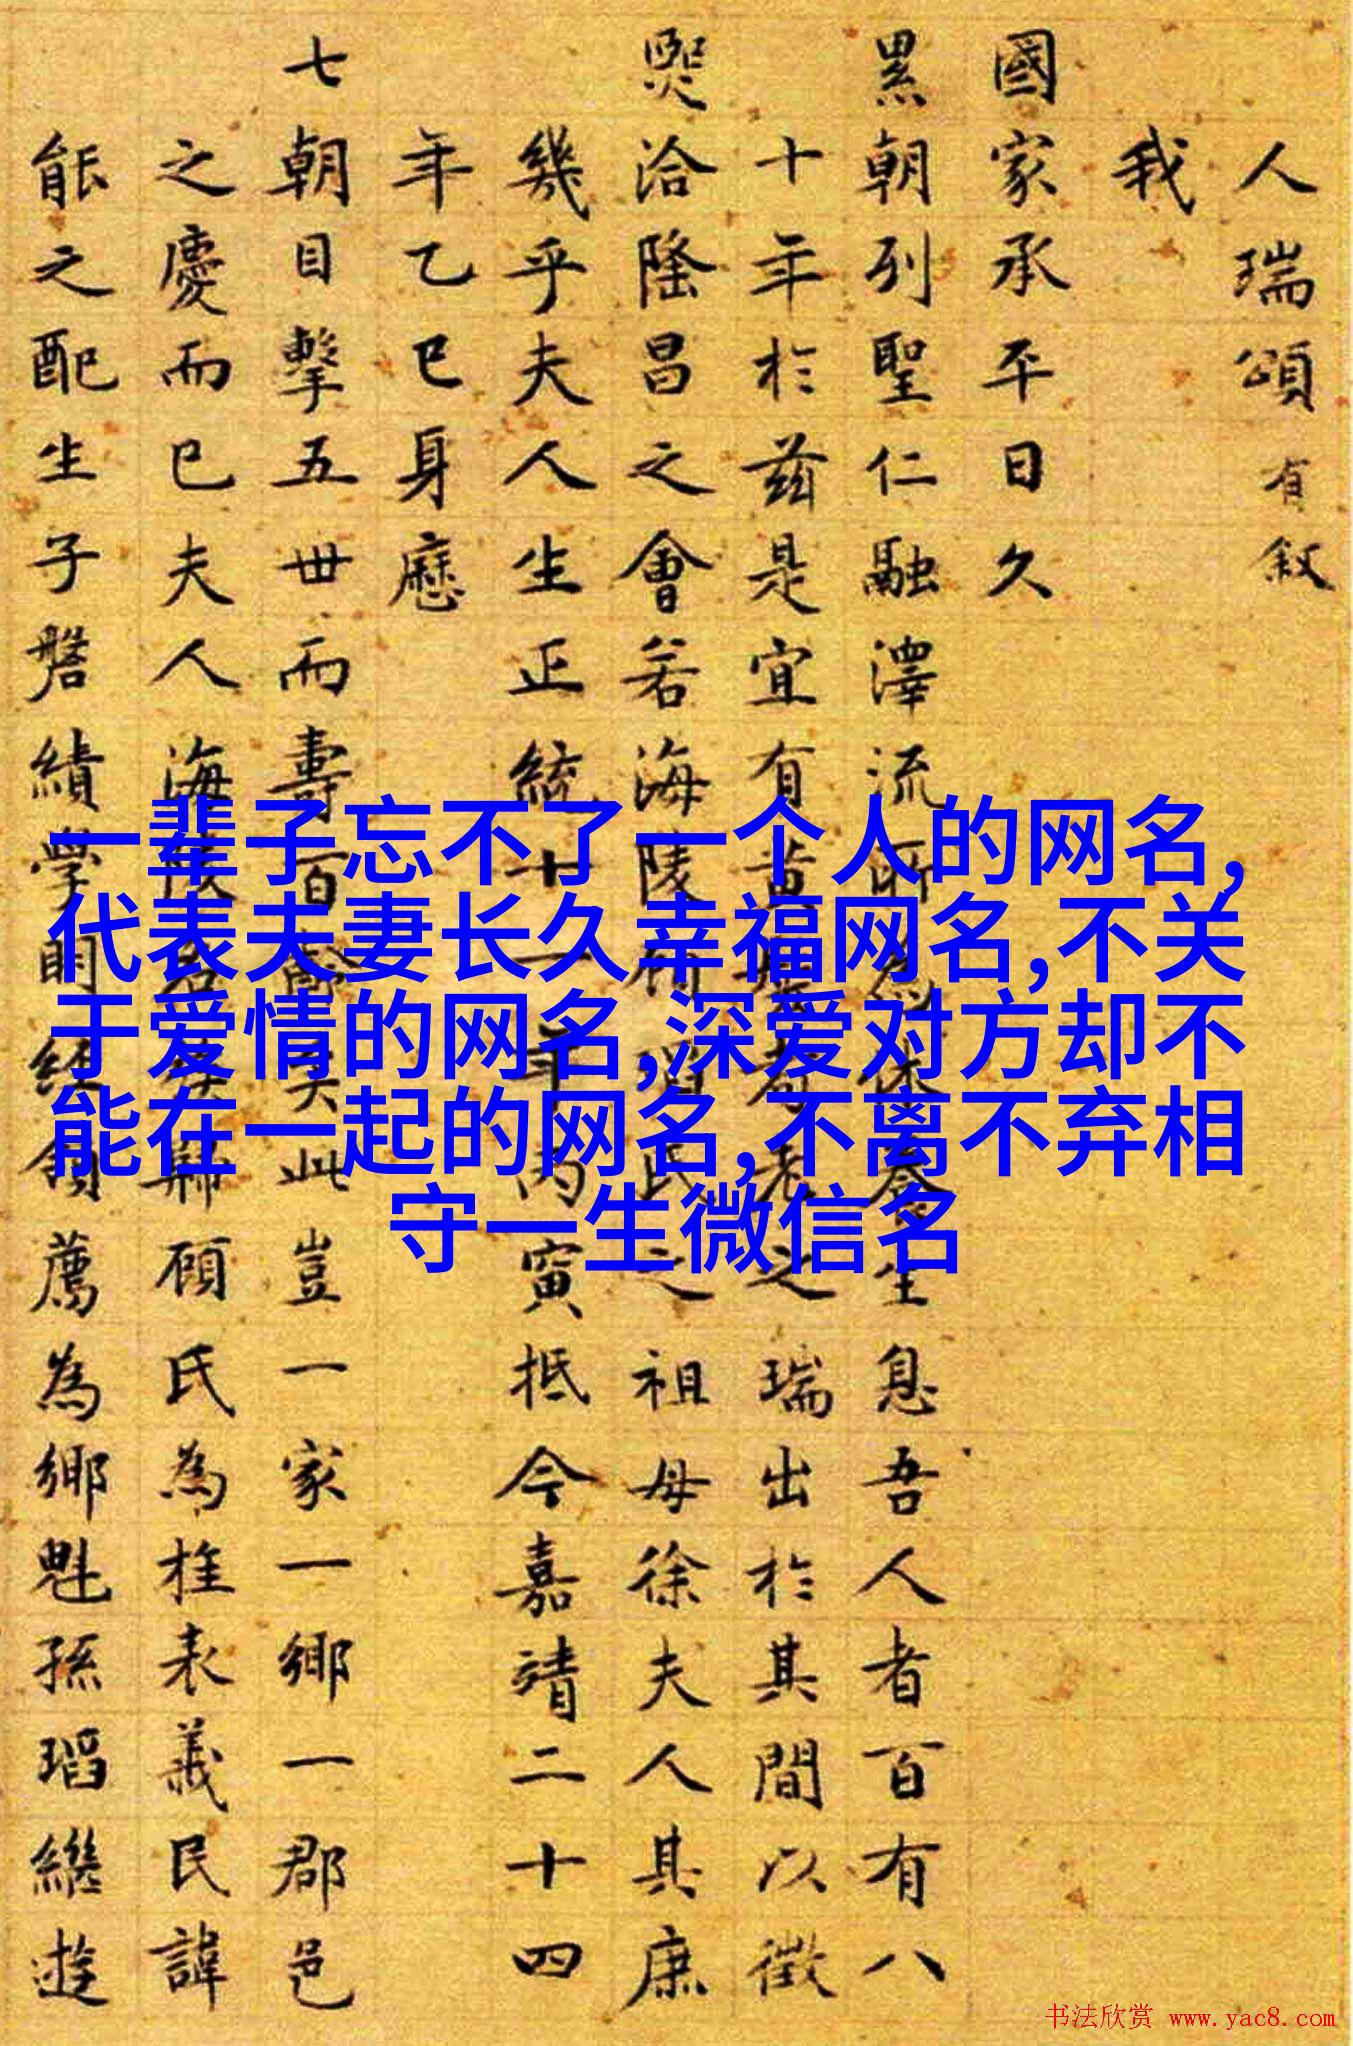 人瑞頌有叙
我
國家承平日久
累朝列聖仁融澤流所休養生息吾人者百有八
十年於兹是宜有黄耇老之瑞出於其間以徵
熙洽隆昌之會若海陵氏之祖母徐夫人其庶
幾乎夫人生正統十一年丙寅抵今嘉靖二十四
年乙巳身歷
七朝目擊五世而壽百齡矣此豈一家一鄉一郡邑
之慶而已夫人海陵名族歸顧氏為旌表義民諱
能之配生子磐績學明經領薦為鄉魁孫瑫繼遊
一辈子忘不了一个人的网名,
代表夫妻长久幸福网名,不关
于爱情的网名,深爱对方却不
能在一起的网名,不离不弃相
守一生微信名
书法欣赏 www.yac8.com